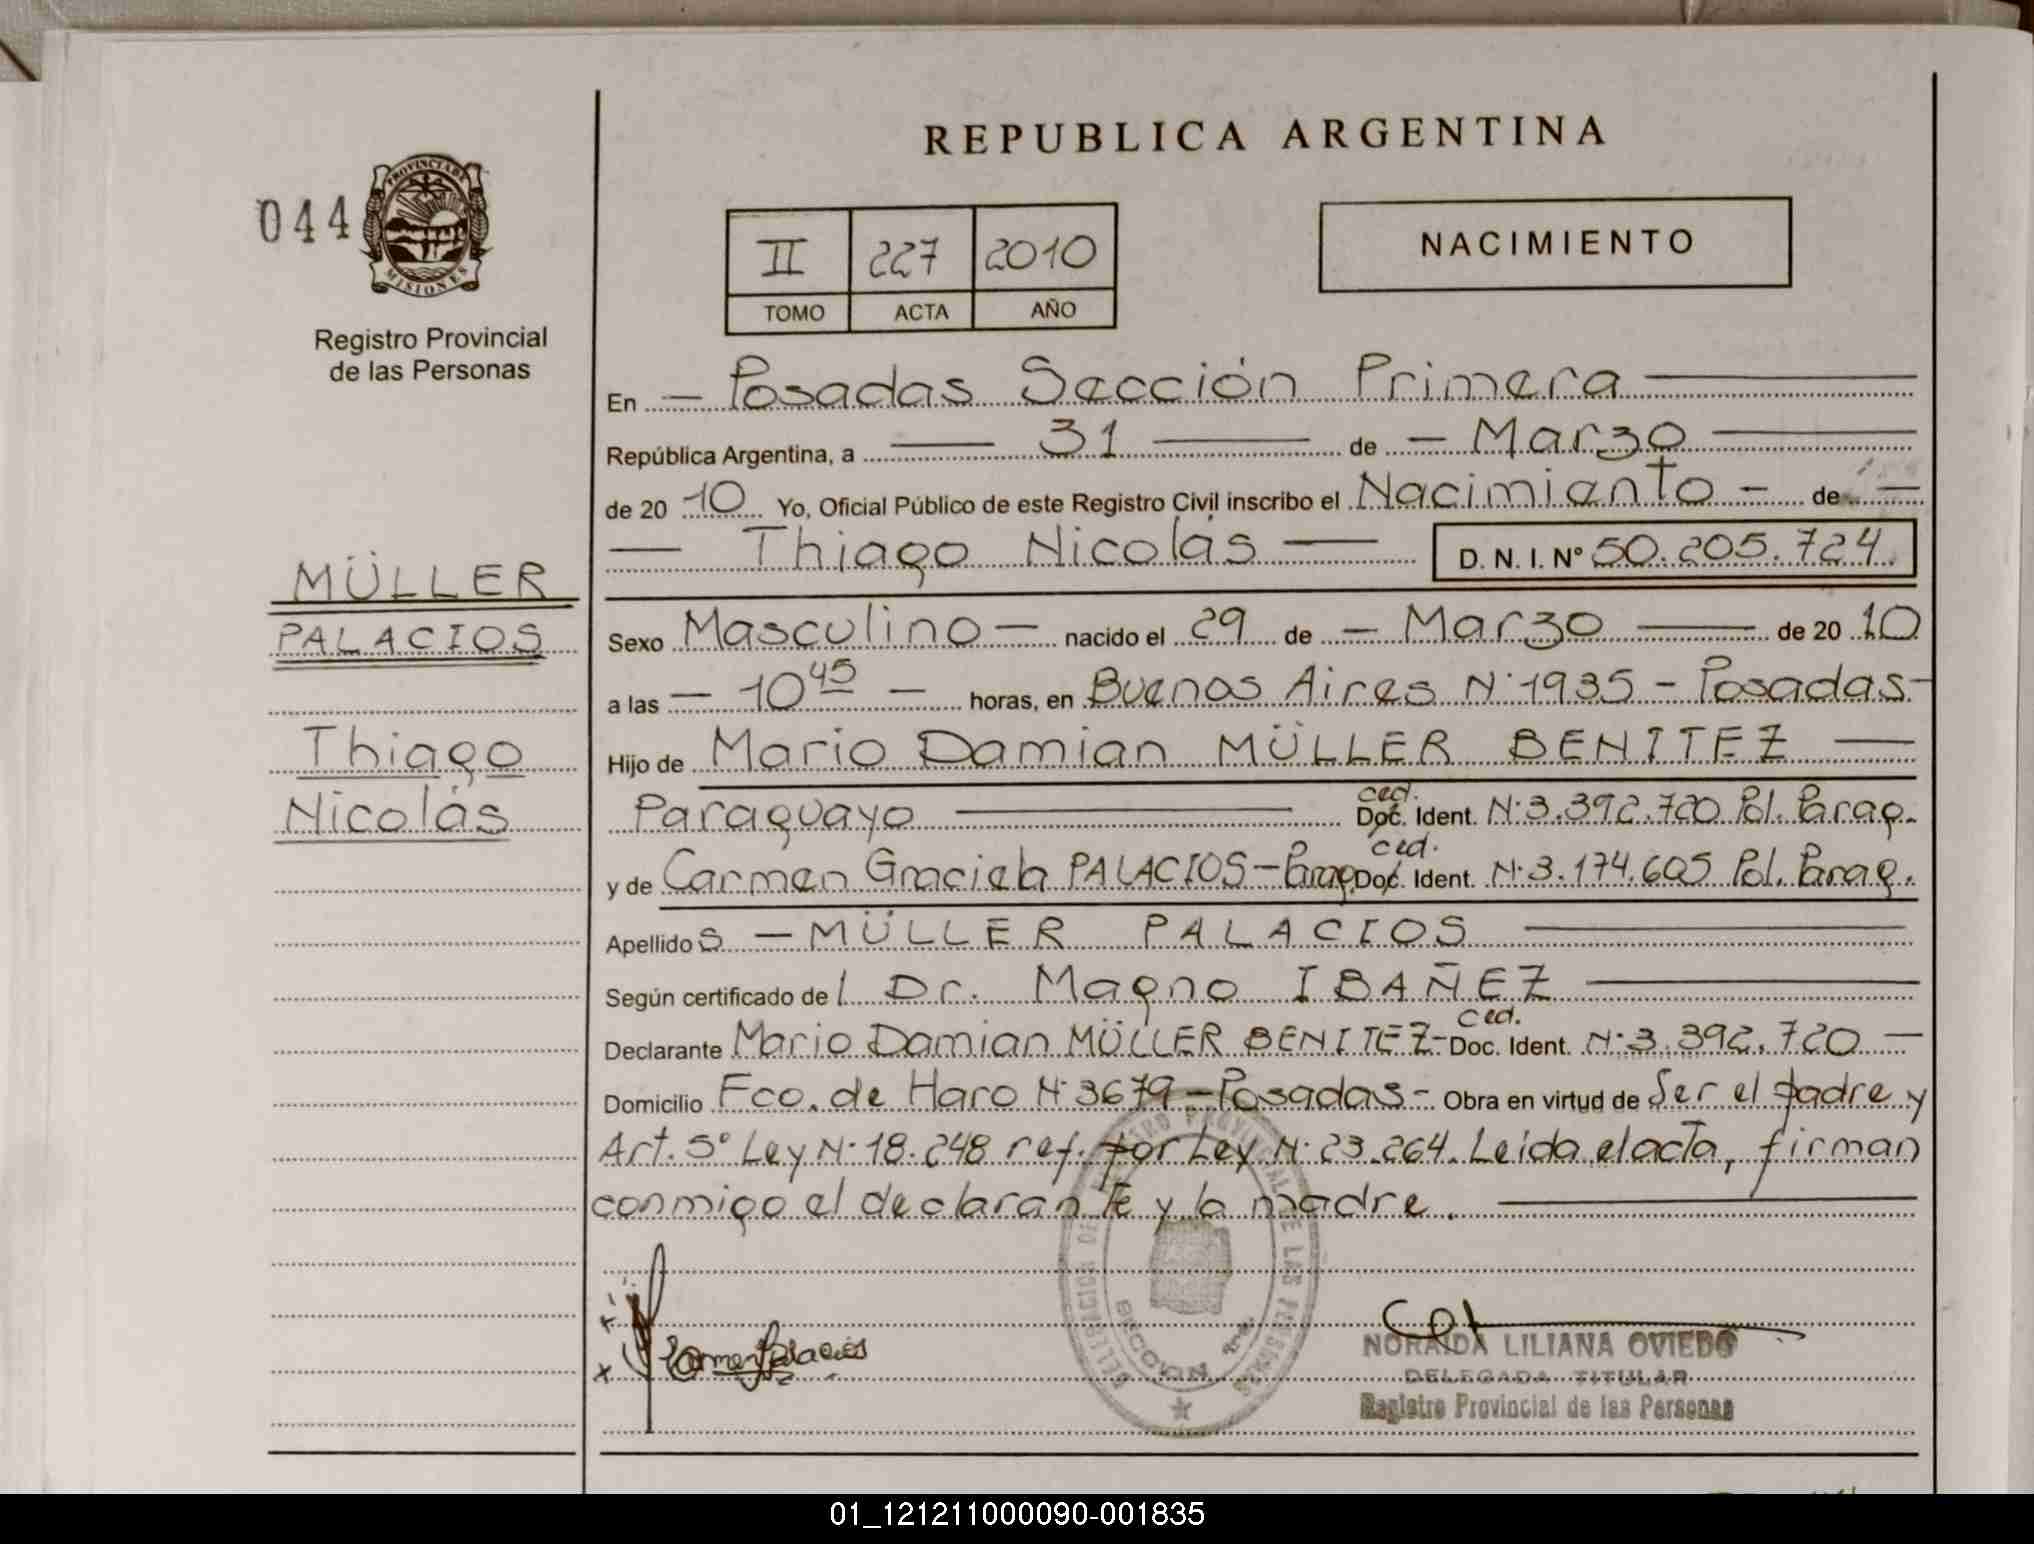 REPUBLICA ARGENTINA
044
PROVINCIA DE MISIONES
Registro Provincial
de las Personas
II 227 2010
TOMO ACTA AÑO
NACIMIENTO
En — Posadas Sección Primera —
República Argentina, a — 31 — de — Marzo —
de 20 10 Yo, Oficial Público de este Registro Civil inscribo el Nacimiento – de –
— Thiago Nicolás — D. N. I. Nº 50.205.724
MÜLLER
PALACIOS
Thiago
Nicolás
Sexo Masculino — nacido el 29 de — Marzo — de 20 10
a las — 10 45 — horas, en Buenos Aires N° 1935 – Posadas –
Hijo de Mario Damian MÜLLER BENITEZ —
Paraguayo — ced. Doc. Ident. N° 3.392.720 Pol. Parag.
y de Carmen Graciela PALACIOS – Parag. ced. Doc. Ident. N° 3.174.605 Pol. Parag.
Apellidos — MÜLLER PALACIOS —
Según certificado del Dr. Magno IBAÑEZ —
Declarante Mario Damian MÜLLER BENITEZ – ced. Doc. Ident. N° 3.392.720 —
Domicilio Fco. de Haro N° 3679 – Posadas – Obra en virtud de Ser el padre y
Art. 5° Ley N° 18.248 ref. por Ley N° 23.264. Leida el acta, firman
conmigo el declarante y la madre. —
x
x Carmen Palacios
DELEGACION DEL REGISTRO PROVINCIAL DE LAS PERSONAS
SECCION 1ra.
NORAIDA LILIANA OVIEDO
DELEGADA TITULAR
Registro Provincial de las Personas
01_121211000090-001835